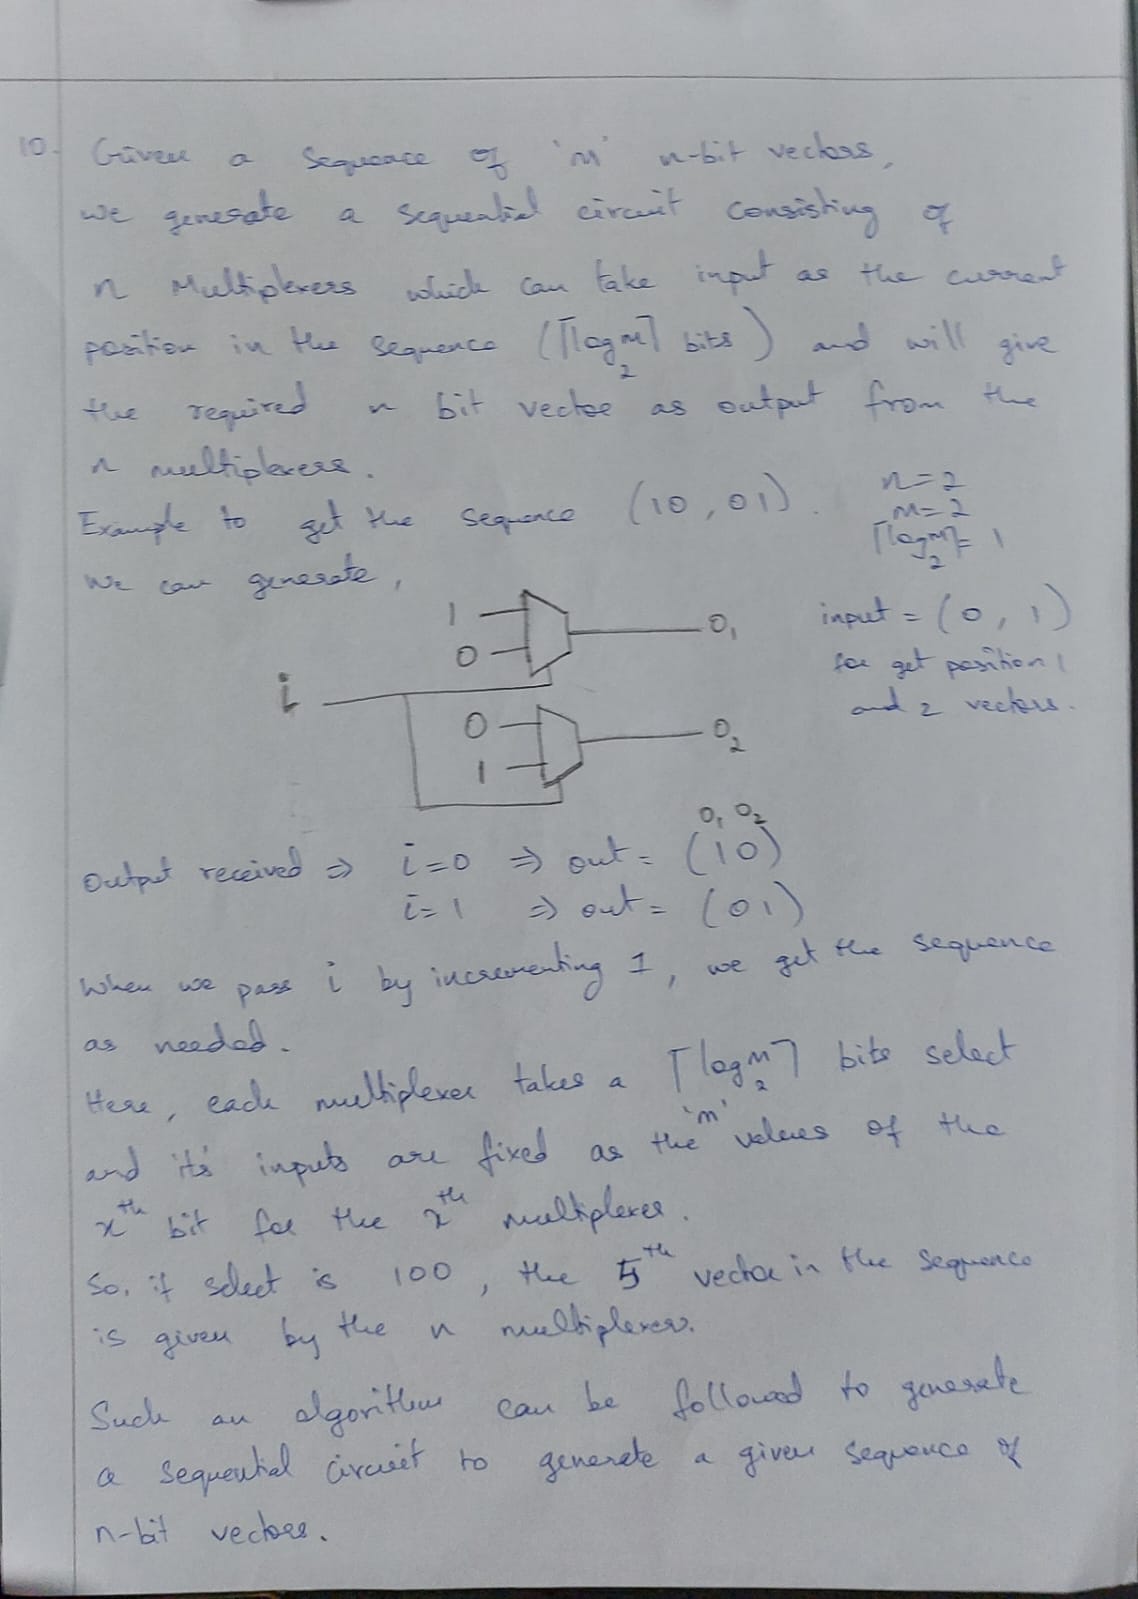 10. Given a sequence of 'm' n-bit vectors,
we generate a sequential circuit consisting of
n Multiplexers which can take input as the current
position in the sequence (⌈log₂m⌉ bits) and will give
the required n bit vector as output from the
n multiplexers.
Example to get the sequence (10, 01).
n=2
m=2
⌈log₂m⌉= 1
We can generate,
1
0
O₁
i
0
1
O₂
input = (0, 1)
for get position 1
and 2 vectors.
O₁ O₂
Output received ⇒ i=0 ⇒ out = (10)
i=1 ⇒ out = (01)
When we pass i by incrementing 1, we get the sequence
as needed.
Here, each multiplexer takes a ⌈log₂m⌉ bits select
and its' inputs are fixed as the 'm' values of the
xᵗʰ bit for the xᵗʰ multiplexer.
So, if select is 100, the 5ᵗʰ vector in the sequence
is given by the n multiplexers.
Such an algorithm can be followed to generate
a sequential circuit to generate a given sequence of
n-bit vectors.